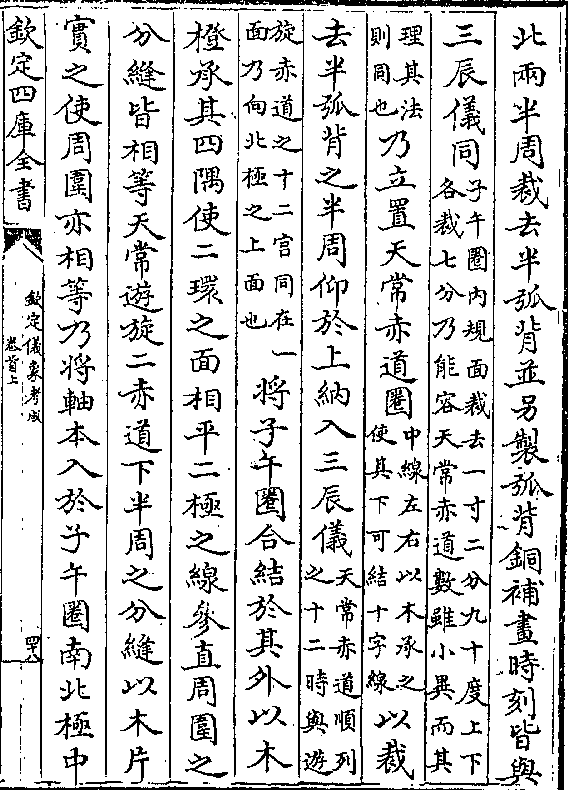 北兩半周裁去半弧背並另製弧背銅補畫時刻皆與
三辰儀同子午圈內規面裁去一寸二分九十度上下
各裁七分乃能容天常赤道數雖小異而其
理其法
則同也乃立置天常赤道圈中線左右以木承之
使其下可結十字線以裁
去半弧背之半周仰於上納入三辰儀天常赤道順列
之十二時與遊
旋赤道之十二宮同在
面乃向北極之上面也一將子午圈合結於其外以木
橙承其四隅使二環之面相平二極之線參直周圍之
分縫皆相等天常遊旋二赤道下半周之分縫以木片
實之使周圍亦相等乃將軸本入於子午圈南北極中
欽定四庫全書
欽定儀象考成
卷首上
四十八